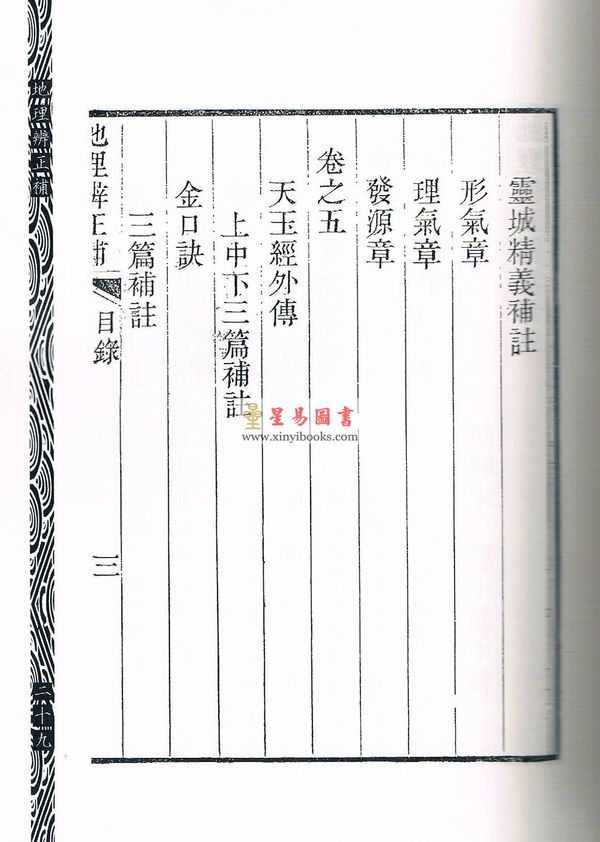 靈城精義補註
形氣章
理氣章
發源章
卷之五
天玉經外傳
上中下三篇補註
金口訣
三篇補註
地理辨正補
目錄
三
地理辨正補
二十九
星易圖書
www.xinyibooks.com